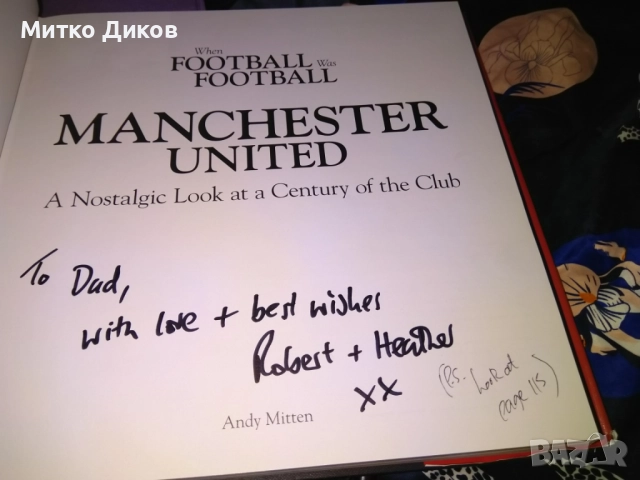 Митко Диков
When
FOOTBALL Was
FOOTBALL
MANCHESTER
UNITED
A Nostalgic Look at a Century of the Club
To Dad,
with love + best wishes
Robert + Heather
xx
(P.S.
Look at
page 115)
Andy Mitten
BAZAR